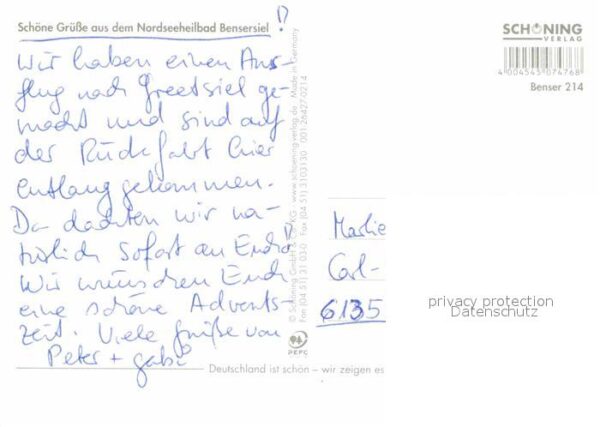 Schöne Grüße aus dem Nordseeheilbad Bensersiel !
Wir haben einen Aus-
flug nach Greetsiel ge-
macht und sind auf
der Rückfahrt hier
entlanggekommen.
Da dachten wir na-
türlich sofort an Euch!
Wir wünschen Euch
eine schöne Advents-
zeit. Viele Grüße von
Peter + Gabi
SCHÖNING
VERLAG
4 004545 074768
Benser 214
© Schöning GmbH & Co. KG · www.schoening-verlag.de · Made in Germany
Fon (04 51) 31 03-0 · Fax (04 51) 3103130 · 001-26427-0214
PEFC
Marlie
Carl-
6135
privacy protection
Datenschutz
Deutschland ist schön – wir zeigen es